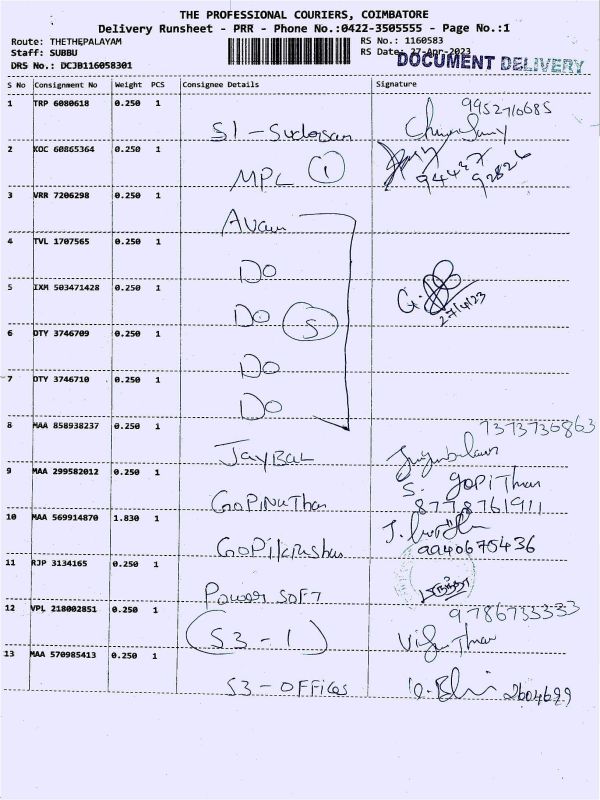 THE PROFESSIONAL COURIERS, COIMBATORE
Delivery Runsheet - PRR - Phone No.:0422-3505555 - Page No.:1
Route: THETHEPALAYAM
RS No.: 1160583
Staff: SUBBU
RS Date: 27-Apr-2023
DOCUMENT DELIVERY
DRS No.: DCJB116058301
S No Consignment No Weight PCS Consignee Details Signature
1 TRP 6080618 0.250 1
9952710685
S1 - Sudersan
2 KOC 60865364 0.250 1
MPL 1
94427
92826
3 VRR 7206298 0.250 1
Avam
4 TVL 1707565 0.250 1
DO
5 IXM 503471428 0.250 1
DO 5
27/4/23
6 DTY 3746709 0.250 1
DO
7 DTY 3746710 0.250 1
DO
8 MAA 858938237 0.250 1
7373736863
JAYBAL
9 MAA 299582012 0.250 1
S. GOPIThan
GOPINAThan
8778761911
10 MAA 569914870 1.830 1
GOPIkrishan
9940675436
11 RJP 3134165 0.250 1
POWER SOFT
12 VPL 218002851 0.250 1
9786733333
(S3 - 1)
13 MAA 570985413 0.250 1
S3 - OFFICES
2604699